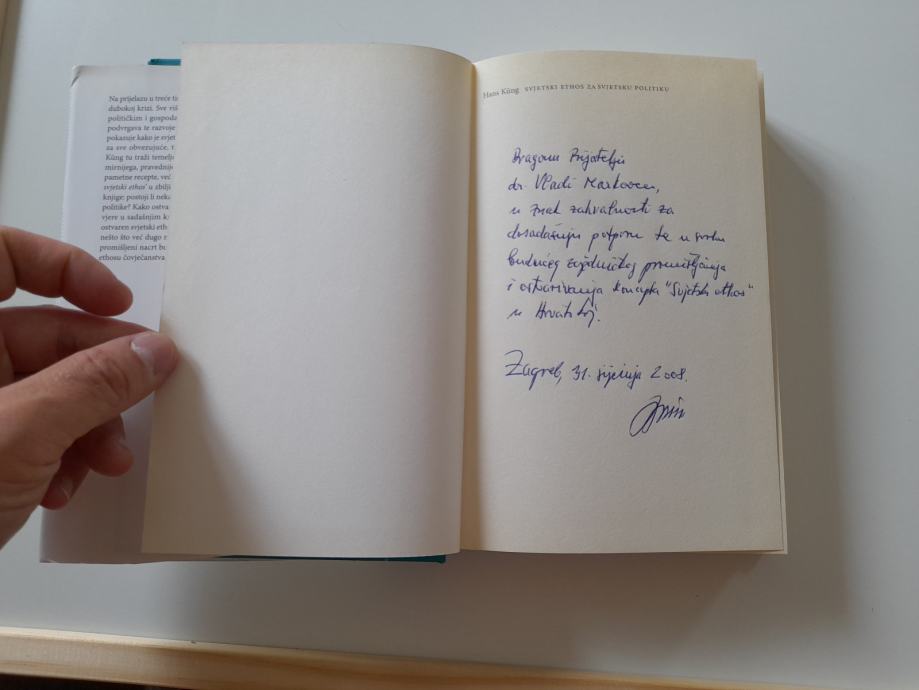 Na prijelazu u treće ti
dubokoj krizi. Sve viš
političkim i gospoda
podvrgava te razvoje
pokazuje kako je svjet
za sve obvezujuće, t
Küng tu traži temelj
mirnijega, pravednije
pametne recepte, već
svjetski ethos' u zbilj
knjige: postoji li neka
politike? Kako ostva
vjere u sadašnjim k
ostvaren svjetski eth
nešto što već dugo r
promišljeni nacrt bu
ethosu čovječanstva
Hans Küng SVJETSKI ETHOS ZA SVJETSKU POLITIKU
Dragom Prijatelju
dr. Vladi Markovcu,
u znak zahvalnosti za
dosadašnju potporu te u svrhu
budućeg zajedničkog promišljanja
i ostvarivanja koncepta "Svjetski ethos"
u Hrvatskoj.
Zagreb, 31. siječnja 2008.